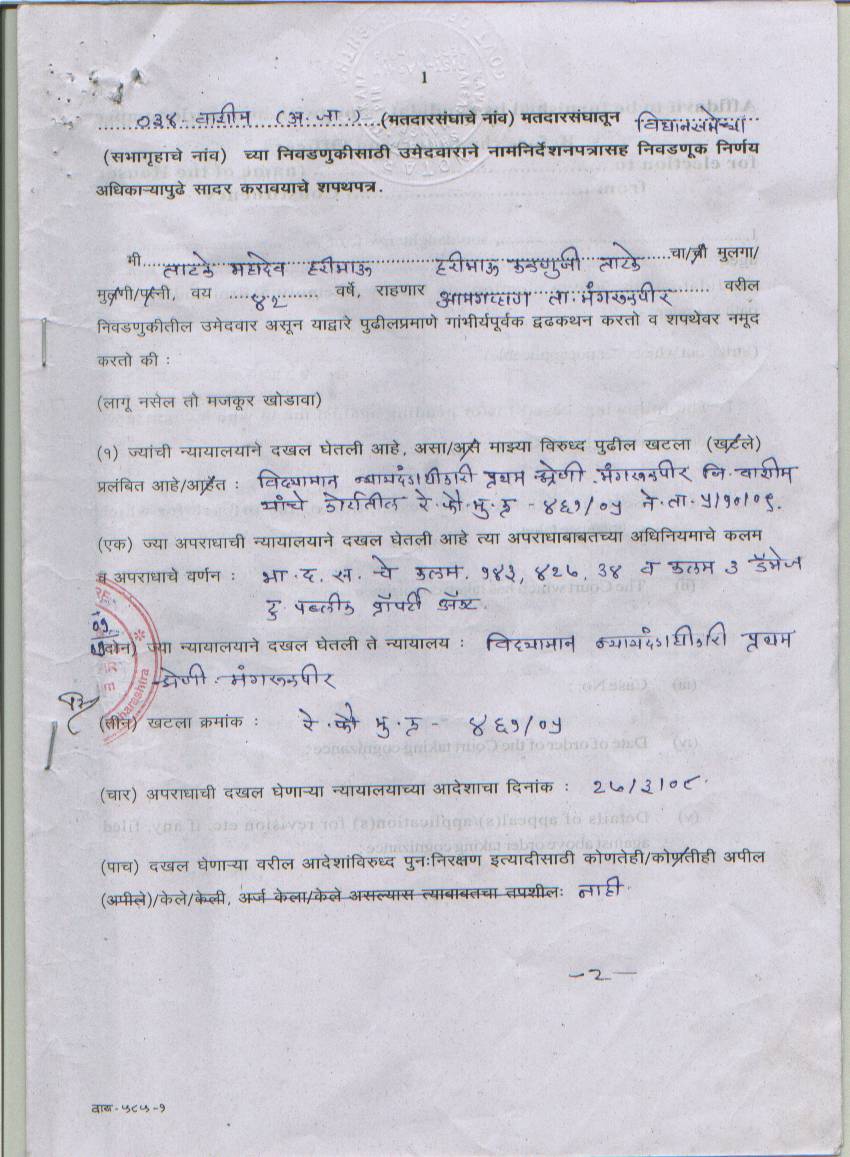 1
०३४- वाशीम (अ.जा.) (मतदारसंघाचे नांव) मतदारसंघातून विधानसभेच्या
(सभागृहाचे नांव) च्या निवडणुकीसाठी उमेदवाराने नामनिर्देशनपत्रासह निवडणूक निर्णय
अधिकाऱ्यापुढे सादर करावयाचे शपथपत्र.
मी ताटके महादेव हरीभाऊ हरीभाऊ ताटके चा/ची मुलगा/
मुलगी/पत्नी, वय ४२ वर्षे, राहणार ता. मंगरुळपीर वरील
निवडणुकीतील उमेदवार असून याद्वारे पुढीलप्रमाणे गांभीर्यपूर्वक द्वढकथन करतो व शपथेवर नमूद
करतो की :
(लागू नसेल तो मजकूर खोडावा)
(१) ज्यांची न्यायालयाने दखल घेतली आहे, असा/असे माझ्या विरुध्द पुढील खटला (खटले)
प्रलंबित आहे/आहेत : विद्यामान न्यायदंडाधीकारी प्रथम श्रेणी मंगरुळपीर जि. वाशीम
यांचे कोर्टातील रे. फौ. मु. क्र - ४६१/०५ ने. ता. ५/१०/०९.
(एक) ज्या अपराधाची न्यायालयाने दखल घेतली आहे त्या अपराधाबाबतच्या अधिनियमाचे कलम
व अपराधाचे वर्णन : भा. द. स. चे कलम. १४३, ४२७, ३४ व कलम ३ डॅमेज
टु पब्लीक प्रॉपर्टी ॲक्ट.
(दोन) ज्या न्यायालयाने दखल घेतली ते न्यायालय : विद्यामान न्यायदंडाधीकारी प्रथम
श्रेणी. मंगरुळपीर
(तीन) खटला क्रमांक : रे. फौ मु. क्र - ४६१/०५
(चार) अपराधाची दखल घेणाऱ्या न्यायालयाच्या आदेशाचा दिनांक : २७/३/०९.
(पाच) दखल घेणाऱ्या वरील आदेशांविरुध्द पुनःनिरक्षण इत्यादीसाठी कोणतेही/कोणतीही अपील
(अपीले)/केले/केली, अर्ज केला/केले असल्यास त्याबाबतचा तपशीलः नाही.
-2-
वाब-५८५-१